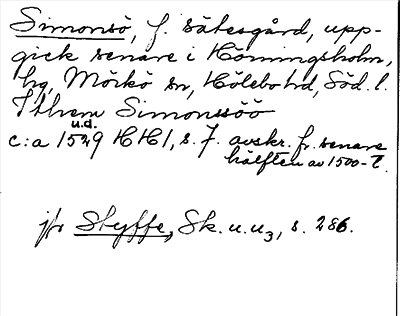 Simonsö, f. sätesgård, upp-
gick senare i Hörningsholm,
hg, Mörkö sn, Hölebo hd, Söd. l.
Ithem Simonssöö
u.d.
c:a 1529 HH1, s. 7. avskr. fr. senare
hälften av 1500-t.
jfr Styffe, Sk. u. u3, s. 286.